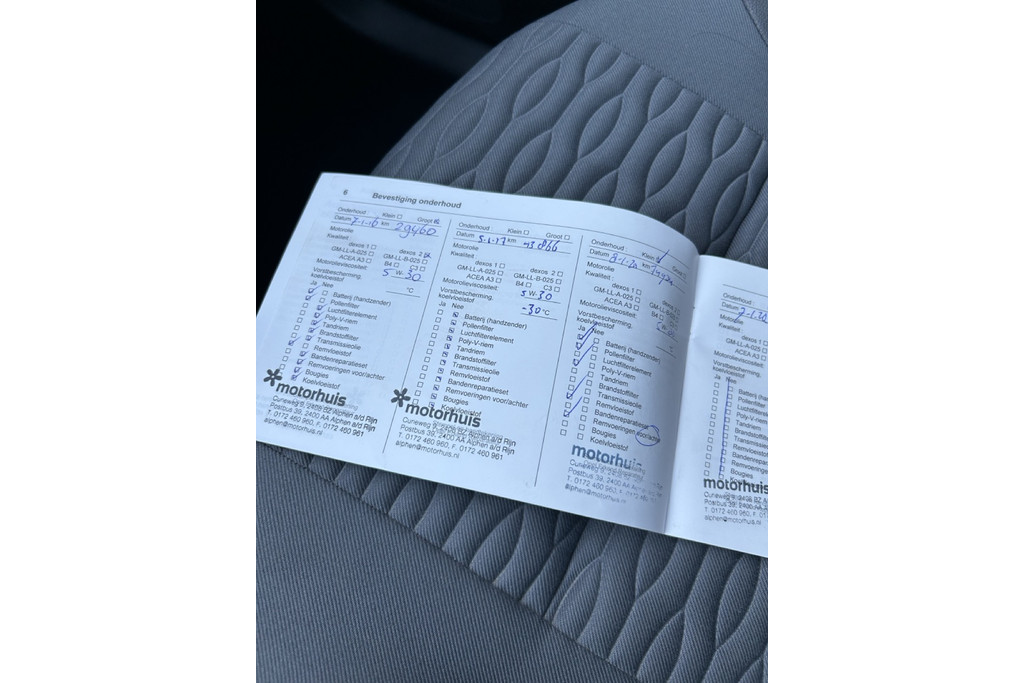 6 Bevestiging onderhoud
Onderhoud : Klein ☐ Groot
Datum 7-1-16 km 29460
Motorolie
Kwaliteit :
dexos 1 ☐ dexos 2
GM-LL-A-025 ☐ GM-LL-B-025 ☐
ACEA A3 ☐ B4 ☐ C3 ☐
Motorolieviscositeit: 5 W-30
Vorstbescherming.
koelvloeistof °C
Ja Nee
Batterij (handzender)
Pollenfilter
Luchtfilterelement
Poly-V-riem
Tandriem
Brandstoffilter
Transmissieolie
Remvloeistof
Bandenreparatieset
Remvoeringen voor/achter
Bougies
Koelvloeistof
motorhuis
Cuneweg 9, 2408 BZ Alphen a/d Rijn
Postbus 39, 2400 AA Alphen a/d Rijn
T. 0172 460 960, F. 0172 460 961
alphen@motorhuis.nl
Onderhoud : Klein ☐ Groot ☐
Datum 5-1-17 km
Motorolie
Kwaliteit :
dexos 1 ☐ dexos 2 ☐
GM-LL-A-025 ☐ GM-LL-B-025 ☐
ACEA A3 ☐ B4 ☐ C3 ☐
Motorolieviscositeit: 5 W-30
Vorstbescherming.
koelvloeistof -30 °C
Ja Nee
Batterij (handzender)
Pollenfilter
Luchtfilterelement
Poly-V-riem
Tandriem
Brandstoffilter
Transmissieolie
Remvloeistof
Bandenreparatieset
Remvoeringen voor/achter
Bougies
Koelvloeistof
motorhuis
Cuneweg 9, 2408 BZ Alphen a/d Rijn
Postbus 39, 2400 AA Alphen a/d Rijn
T. 0172 460 960, F. 0172 460 961
alphen@motorhuis.nl
Onderhoud : Klein Groot
Datum 8-1-20 km
Motorolie
Kwaliteit :
dexos 1 ☐
GM-LL-A-025 ☐
ACEA A3 ☐
Motorolieviscositeit:
Vorstbescherming.
koelvloeistof
Ja Nee
Batterij (handzender)
Pollenfilter
Luchtfilterelement
Poly-V-riem
Tandriem
Brandstoffilter
Transmissieolie
Remvloeistof
Bandenreparatieset
Remvoeringen voor/achter
Bougies
Koelvloeistof
motorhuis
Cuneweg 9,
Postbus 39, 2400 AA
T. 0172 460 960, F. 0172
alphen@motorhuis.nl
Onderhoud :
Datum
Motorolie
Kwaliteit :
dexos 1
GM-LL-A-025
ACEA A3
Vorstbescherming.
koelvloeistof
Ja Nee
motorhuis
Cuneweg 9, 2408 BZ
Postbus 39, 2400 AA
T. 0172 460 960, F.
alphen@motorhuis.nl